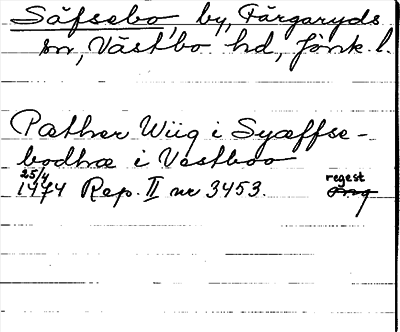 Säfsebo, by, Färgaryds
sn, Västbo hd, Jönk. l.
Pæther Wiig i Syæffse-
bodhæ i Vestboo
25/4
1474 Rep. II nr 3453.
regest